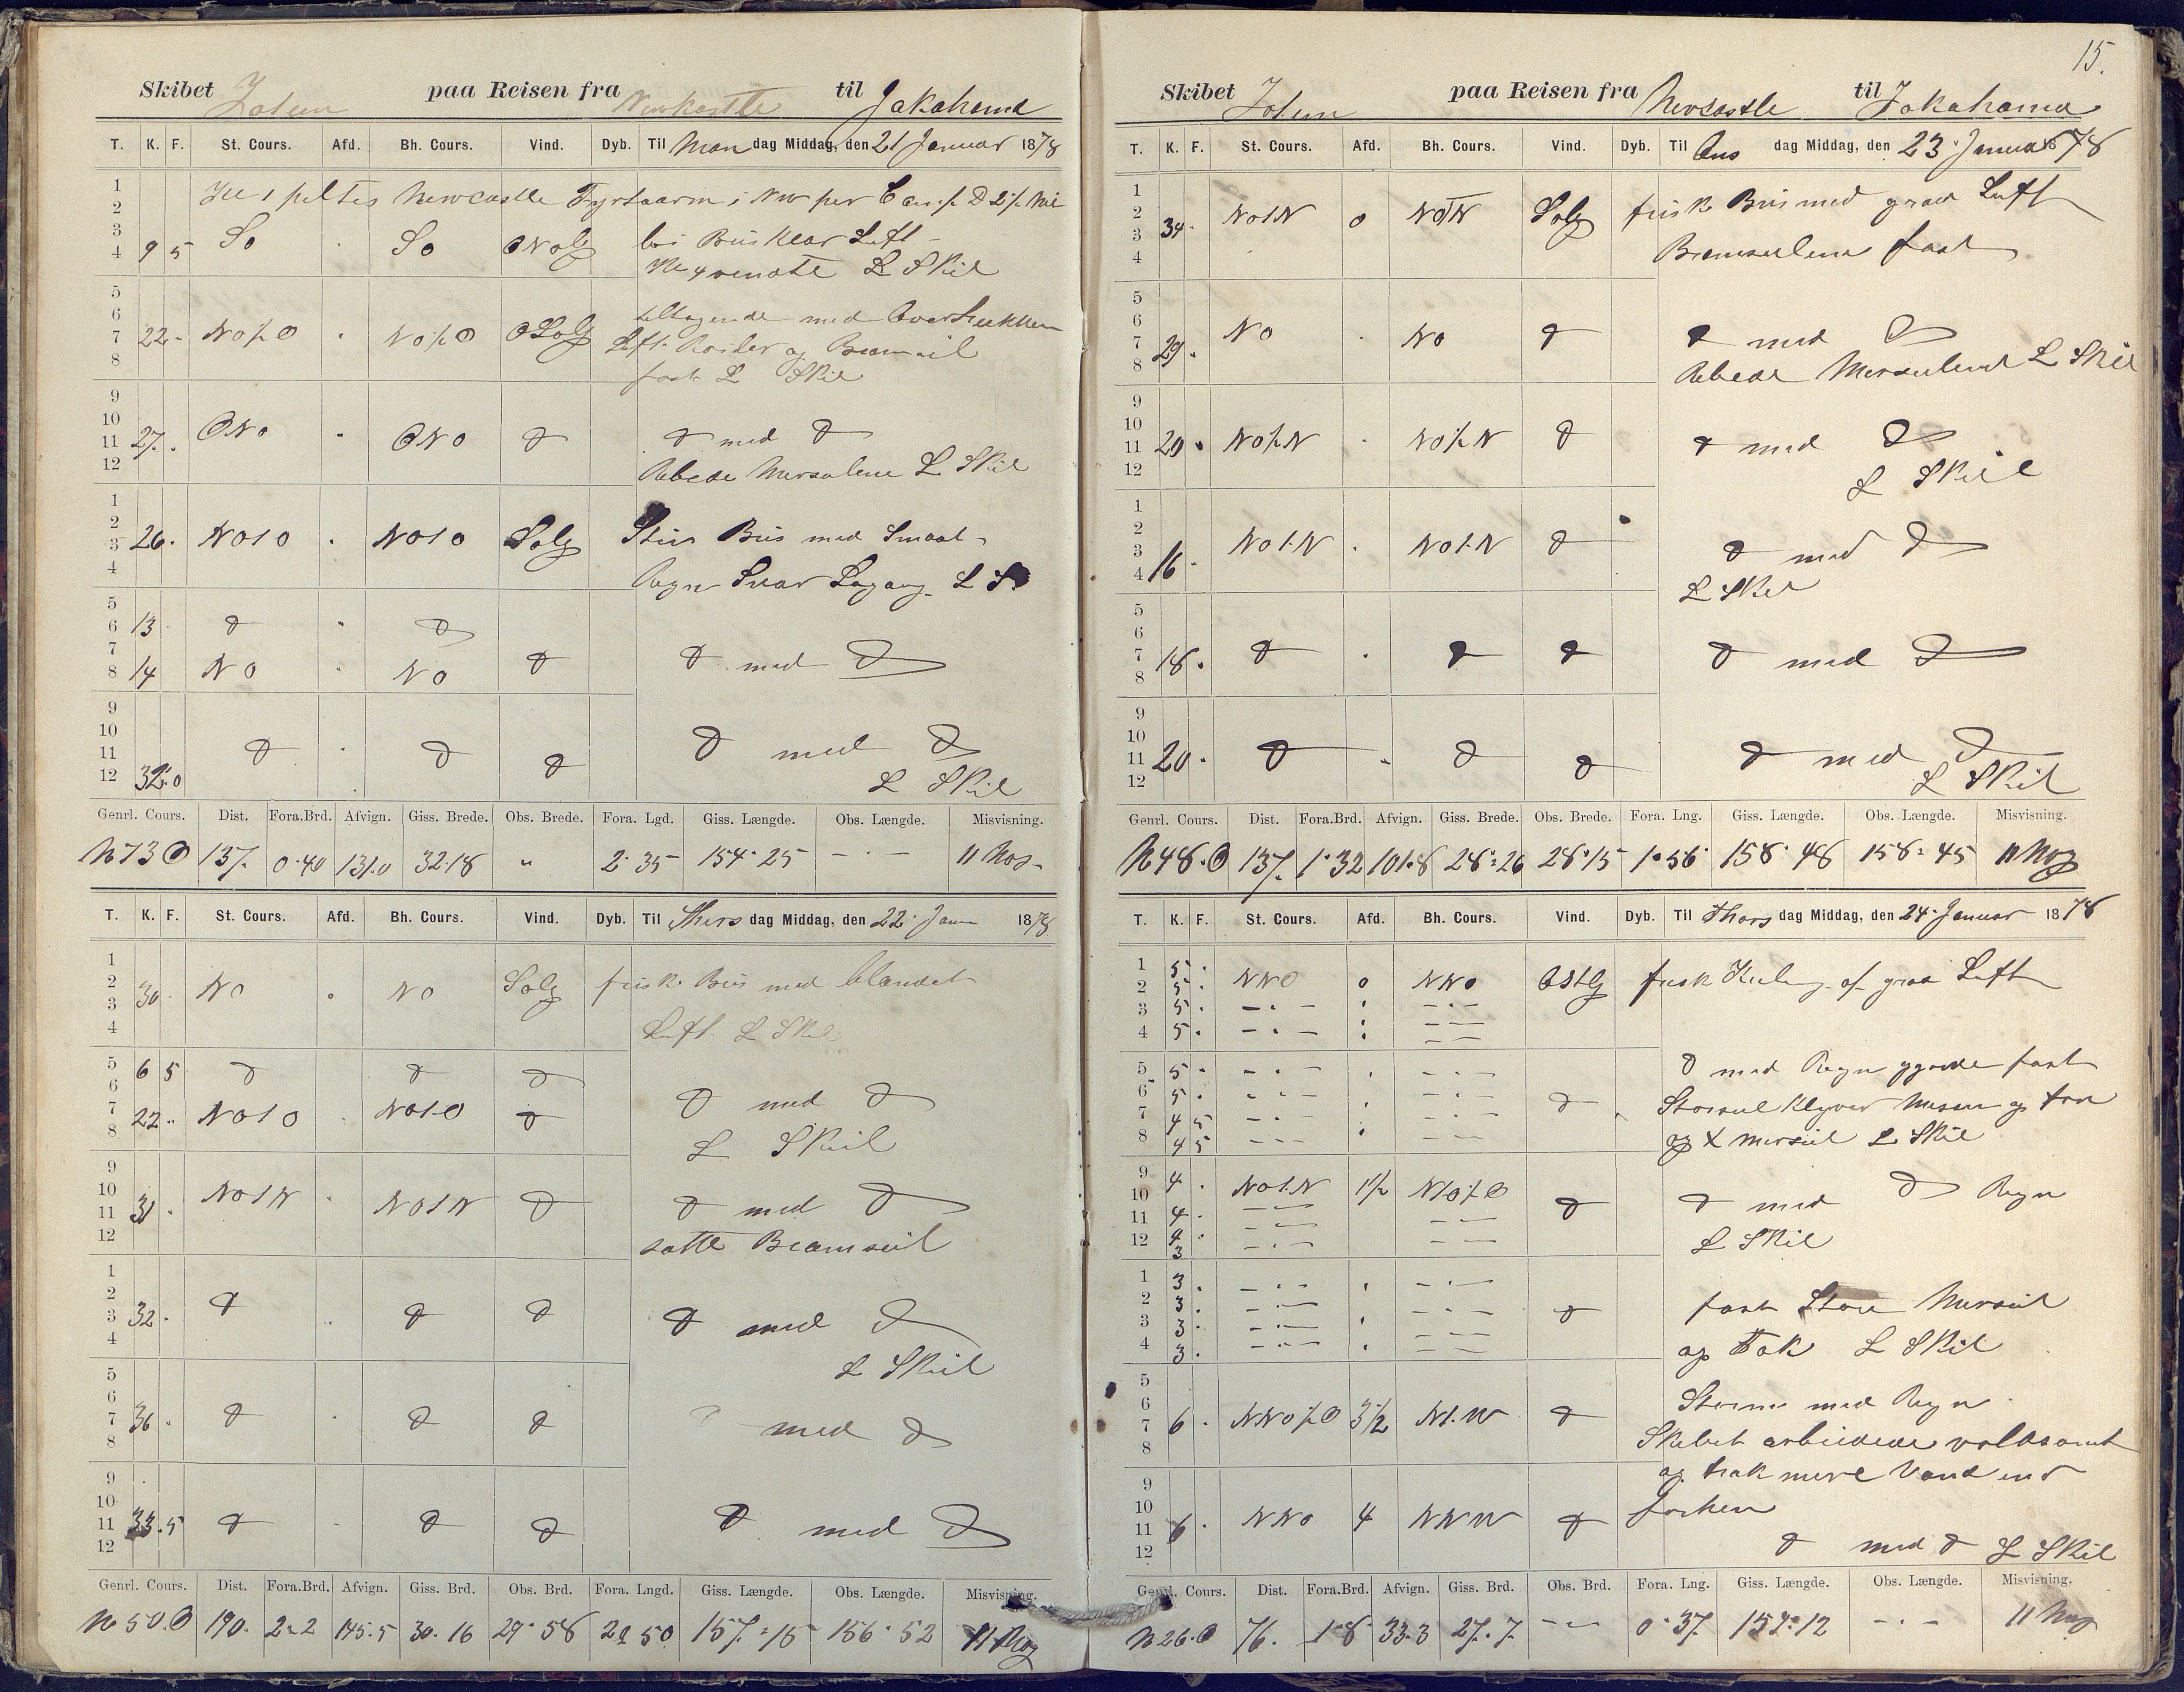 Skibet paa Reisen fra Newkastle til Jakahama
T. K. F. St. Cours. Afd. Bh. Cours. Vind. Dyb. Til Man dag Middag, den 21 Januar 1878
1
2
3
4
Newcastle Fyrtaarn i NW per Comp
9 5 So So ONOlg
bri Bris klar Luft
L Skil
5
6
7
8
22 NO/.O NO/.O OSOlg
tiltagende med Overtrukken
Luft Roiler og Bramseil
fast L Skil
9
10
11
12
27. ONO ONO D D med D
Rebede Mersselene L Skil
1
2
3
4
26. NO10 NO10 SOlg Stiv Bris med Smaat
Regn Svar Sogang L S
5
6
7
8
13 D D
14 NO NO D D med D
9
10
11
12
32.0 D D D D med D
L Skil
Genrl. Cours. Dist. Fora.Brd. Afvign. Giss. Brede. Obs. Brede. Fora. Lgd. Giss. Længde. Obs. Længde. Misvisning.
N 73 O 137. 0·40 131.0 32·18 " 2·35 154·25 - · - 11
T. K. F. St. Cours. Afd. Bh. Cours. Vind. Dyb. Til Thirs dag Middag, den 22 Janu 1878
1
2
3
4
30. NO NO SOlg frisk Bris med blandet
Luft L Skil
5
6
7
8
6 5 D D D
22 NO10 NO1·O D D med D
L Skil
9
10
11
12
31. NO1N NO1N D D med D
satte Bramseil
1
2
3
4
32. D D D D med D
L Skil
5
6
7
8
36. D D D D med D
9
10
11
12
33.5 D D D D med D
Genrl. Cours. Dist. Fora.Brd. Afvign. Giss. Brd. Obs. Brd. Fora. Lngd. Giss. Længde. Obs. Længde. Misvisning.
N 50.O 190. 2·2 145.5 30·16 29·58 2·50 157·15 156·52 11
15.
Skibet paa Reisen fra Newcastle til Jokahama
T. K. F. St. Cours. Afd. Bh. Cours. Vind. Dyb. Til Ons dag Middag, den 23 Januar 1878
1
2
3
4
34. NO1N 0 NO1N SOlg frisk Bris med graa Luft
Bramseilene fast
5
6
7
8
29. NO NO D D med D
Rebede Merseilene L Skil
9
10
11
12
20. NO/.N NO/.N D D med D
L Skil
1
2
3
4
16. NO1.N NO1.N D D med D
L Skil
5
6
7
8
18. D D D D med D
9
10
11
12
20. D D D D med D
L Skil
Genrl. Cours. Dist. Fora.Brd. Afvign. Giss. Brede. Obs. Brede. Fora. Lng. Giss. Længde. Obs. Længde. Misvisning.
N 48.O 137. 1·32 101·8 28·26 28·15 1·56 158·48 158·45 11
T. K. F. St. Cours. Afd. Bh. Cours. Vind. Dyb. Til Thors dag Middag, den 24 Januar 1878
1 5 NNO 0 NNO OStlg frisk Kuling af graa Luft
2 5 - · - - · -
3 5 - · - - · -
4 5 - · - - · -
5 5 - · - - · - D med Regn gjorde fast
6 5 - · - - · - D Storseil Klyver Mesan og for
7 4 5 - · - - · - og X merseil L Skil
8 4 5 - · - - · -
9 4 NO1.N 1½ N1O/.O D D med D Regn
10 4 - · - - · - L Skil
11 4 - · - - · -
12 3 - · -
1 3 - · - - · -
2 3 - · - - · - D fast Store Merseil
3 3 - · - - · - og Fok L Skil
4 3 - · - - · -
5
6
7
8
6 NNO/.O 3½ N1.W D Storm med Regn
Skibet arbeidede voldsomt
og trak mere Vand end
forhen
9
10
11
12
6 NNO 4 NNW D
D med D L Skil
Genrl. Cours. Dist. Fora.Brd. Afvign. Giss. Brd. Obs. Brd. Fora. Lng. Giss. Længde. Obs. Længde. Misvisning.
N 26.O 76. 1·8 33.3 27·7 - · - 0·37 159·12 - · - 11